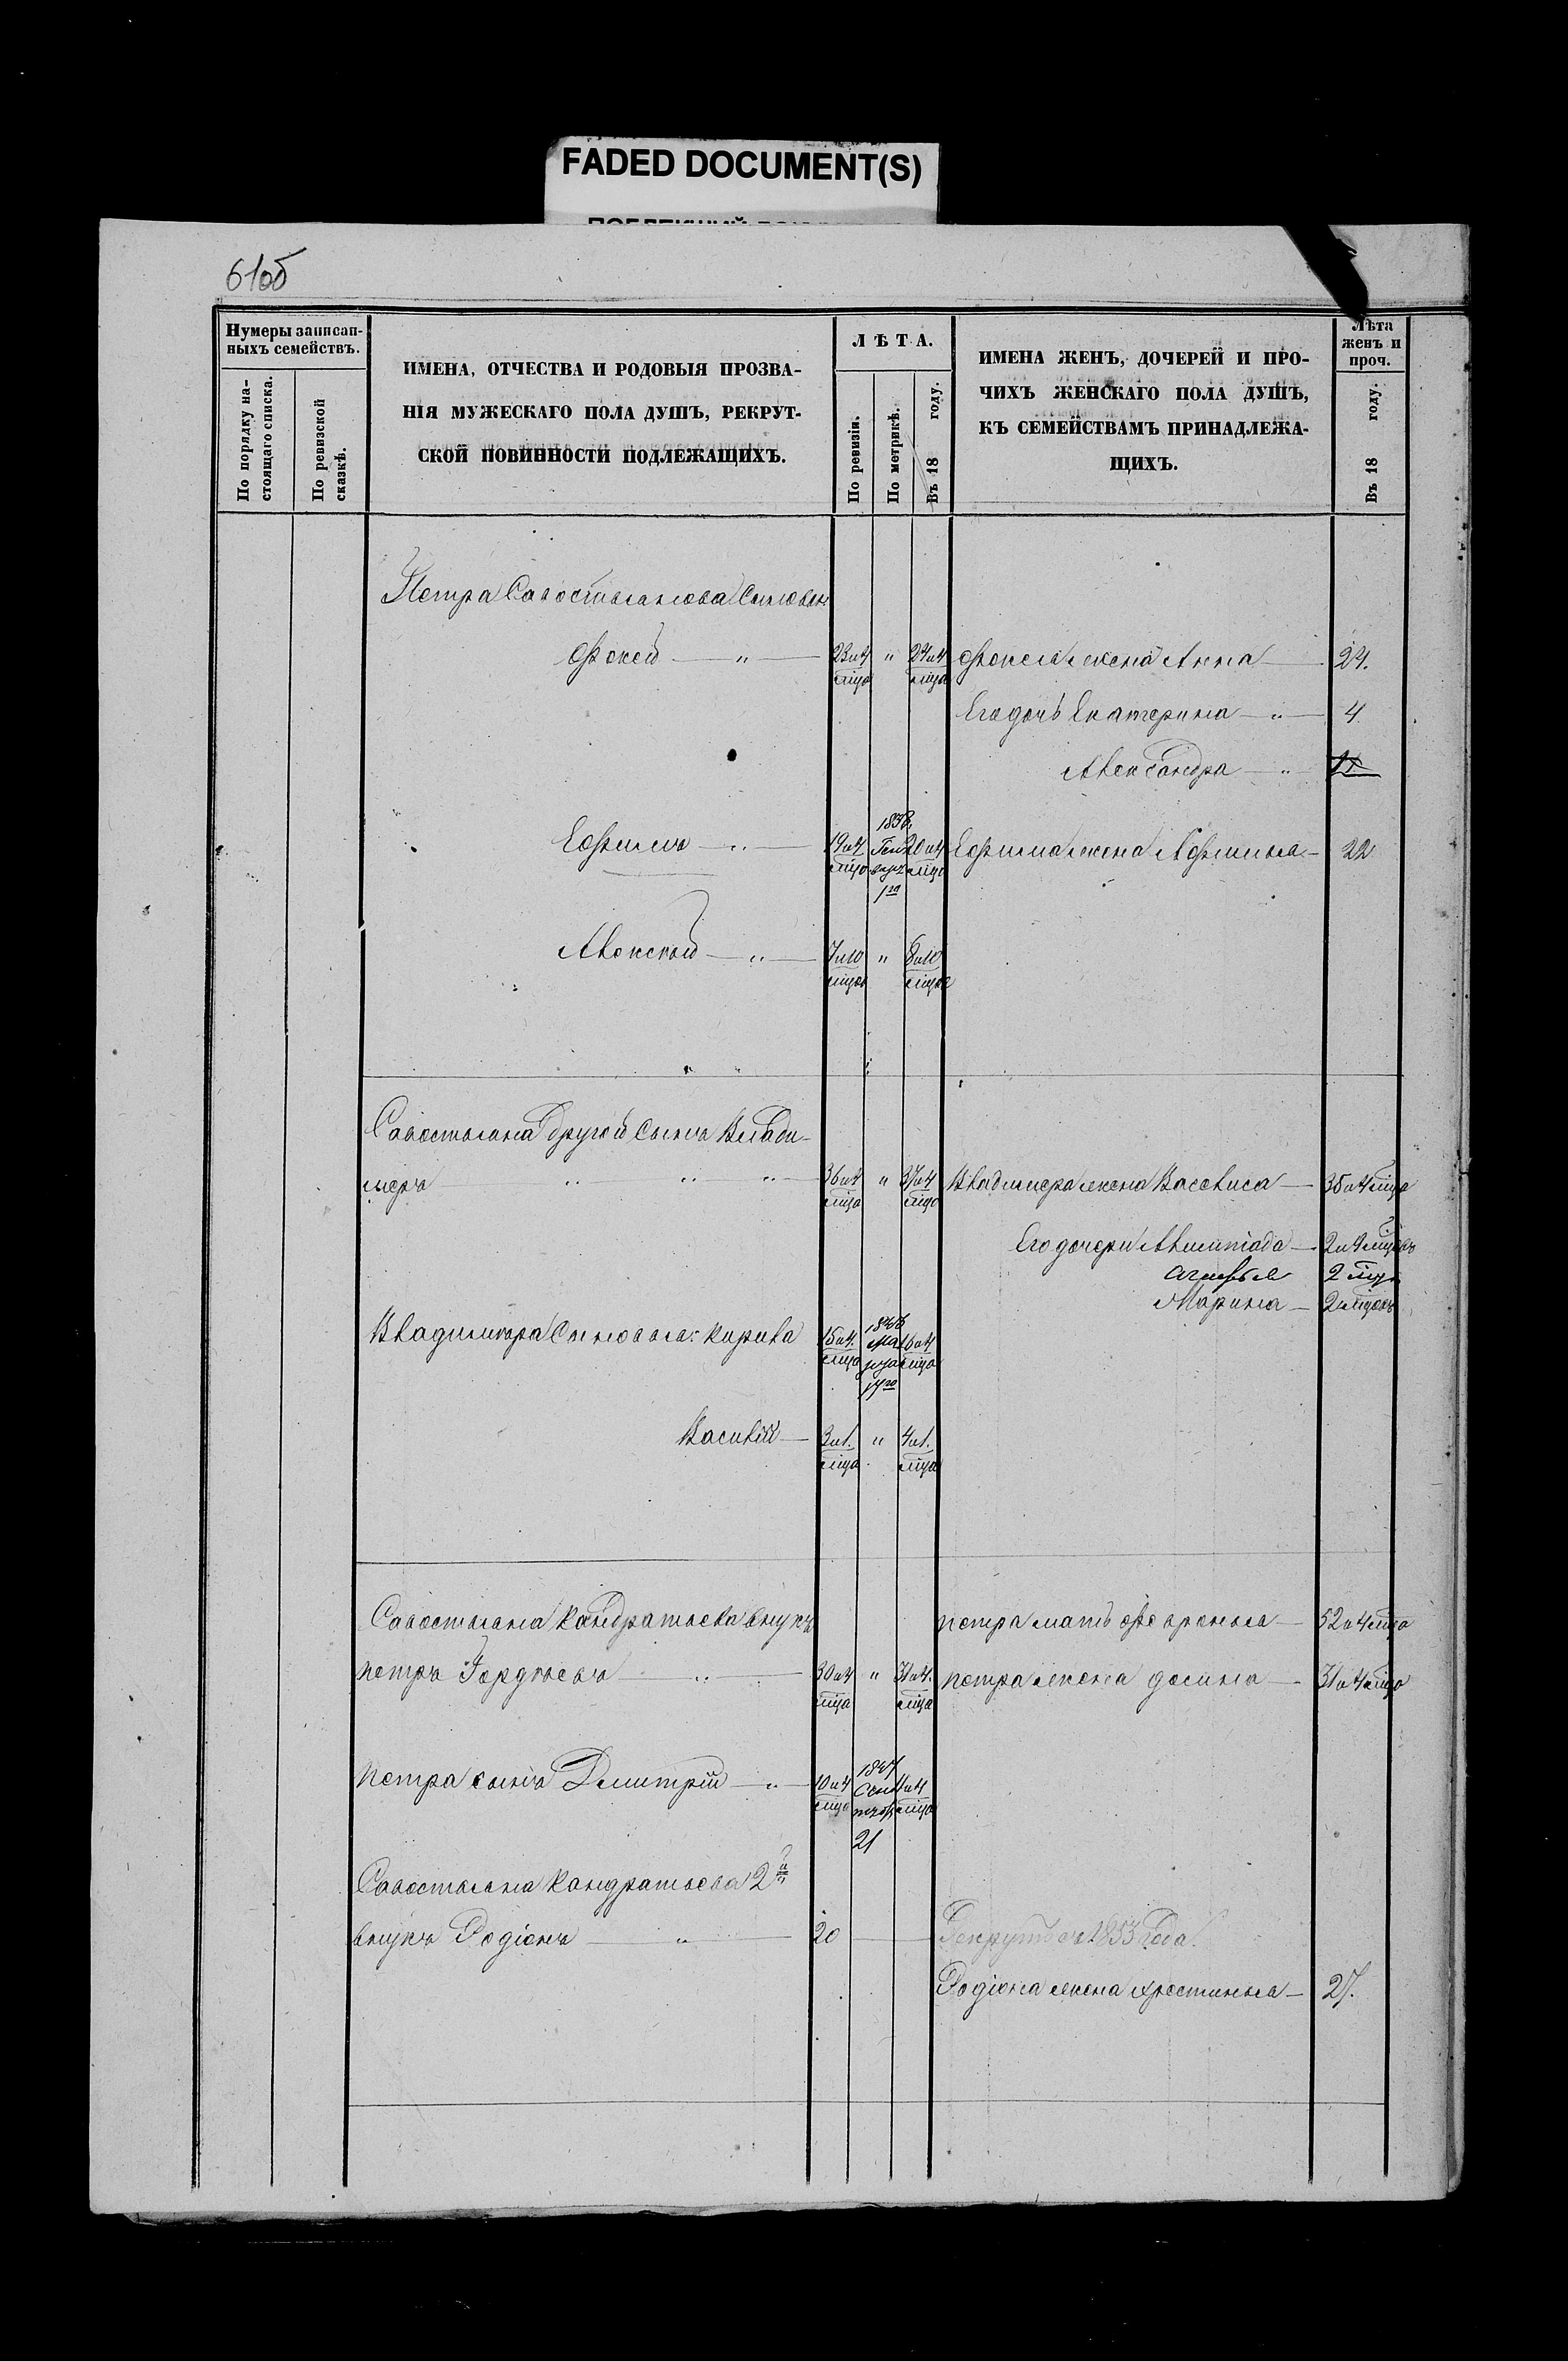 FADED DOCUMENT(S)
61об
Нумеры записан-
ныхъ семействъ.
По порядку на-
стоящаго списка.
По ревизской
сказкѣ.
ИМЕНА, ОТЧЕСТВА И РОДОВЫЯ ПРОЗВА-
НІЯ МУЖЕСКАГО ПОЛА ДУШЪ, РЕКРУТ-
СКОЙ ПОВИННОСТИ ПОДЛЕЖАЩИХЪ.
ЛѢТА.
По ревизіи.
По метрикѣ.
Въ 18 году.
ИМЕНА ЖЕНЪ, ДОЧЕРЕЙ И ПРО-
ЧИХЪ ЖЕНСКАГО ПОЛА ДУШЪ,
КЪ СЕМЕЙСТВАМЪ ПРИНАДЛЕЖА-
ЩИХЪ.
Лѣта
женъ и
проч.
Въ 18 году.
Петра Савостьянова Сыновья
Фокей — " — 23 и 4 мца " 24 и 4 мца Фокея жена Анна — 24.
Его дочь Екатерина — " — 4
Александра — "
Ефимъ — " — 19 и 4 мца 1838 Генваря 1го 20 и 4 мца Ефима жена Афимья — 22
Алексей — " — 7 и 10 мцов " 8 и 10 мцов
Савостьяна другой Сынъ Влади-
меръ " " " — 36 и 4 мца " 37 и 4 мца Владимера жена Василиса — 35 и 4 мца
Его дочери Алимпіада — 2 и 4 мцовъ
2 мц
Марина — 2 мцовъ
Владимера Сыновья: Кирила 15 и 4. мца Марта 17го 16 и 4 мца
Василій — 3 и 1. мца " 4 и 1. мца
Савостьяна Кандратьева внукъ Петра мать Февронья — 52 и 4 мца
Петръ Гордѣевъ — " — 30 и 4 мца " 31 и 4. мца Петра жена — 31 и 4 мца
Петра сынъ Дмитрій — " — 10 и 4 мца 1847 Сентябр 21 11 и 4 мца
Савостьяна Кандратьева 2й
внукъ Родіонъ — " — 20 — Рекрутъ съ 1853 Года.
Родіона жена Хрестинья — 27.